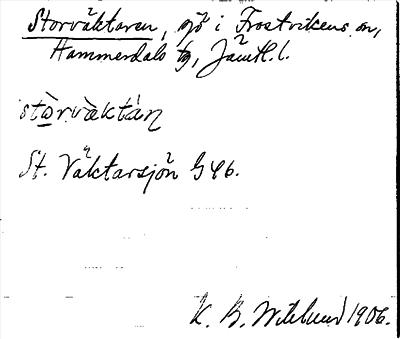 Storväktaren, sjö i Frostvikens sn,
Hammerdals tg, Jämtl. l.
stòrvàktán
St. Väktarsjön G46.
K. B. Wiklund 1906.